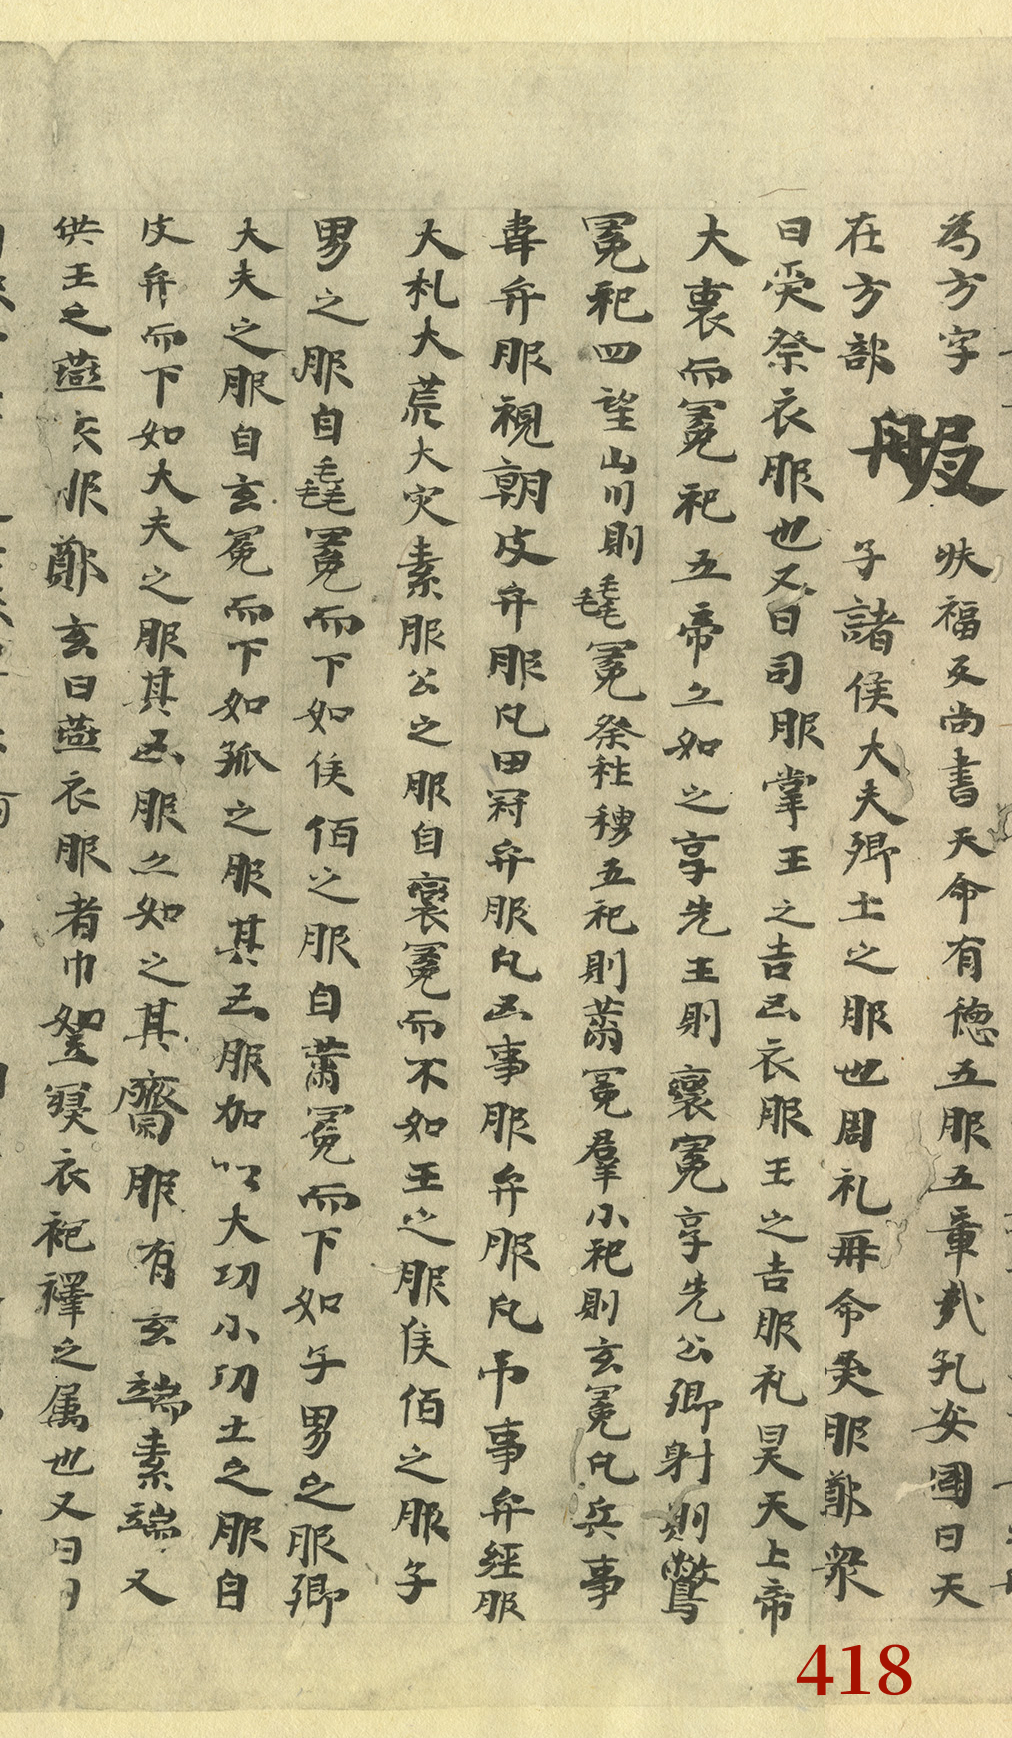 為方字 㕞福反尚書天命有德五服五章哉孔安國曰天
在方部 服 子諸侯大夫卿士之服也周礼再命受服鄭衆
曰受祭衣服也又曰司服掌王之吉凶衣服王之吉服礼昊天上帝
大裘而冕祀五帝亦如之享先王則衮冕享先公卿射則鷩
冕祀四望山川則毳冕祭社稷五祀則𦓝冕羣小祀則玄冕凡兵事
韋弁服視朝皮弁服凡田冠弁服凡凶事服弁服凡吊事弁絰服
大札大荒大灾素服公之服自衮冕而不如王之服侯佰之服子
男之服自毳冕而下如侯佰之服自𦓝冕而下如子男之服卿
大夫之服自玄冕而下如孤之服其凶服加以大功小功土之服自
皮弁而下如大夫之服其凶服亦如之其齋服有玄端素端又
供王之燕衣服鄭玄曰燕衣服者巾絮寢衣袍襗之属也又曰
418